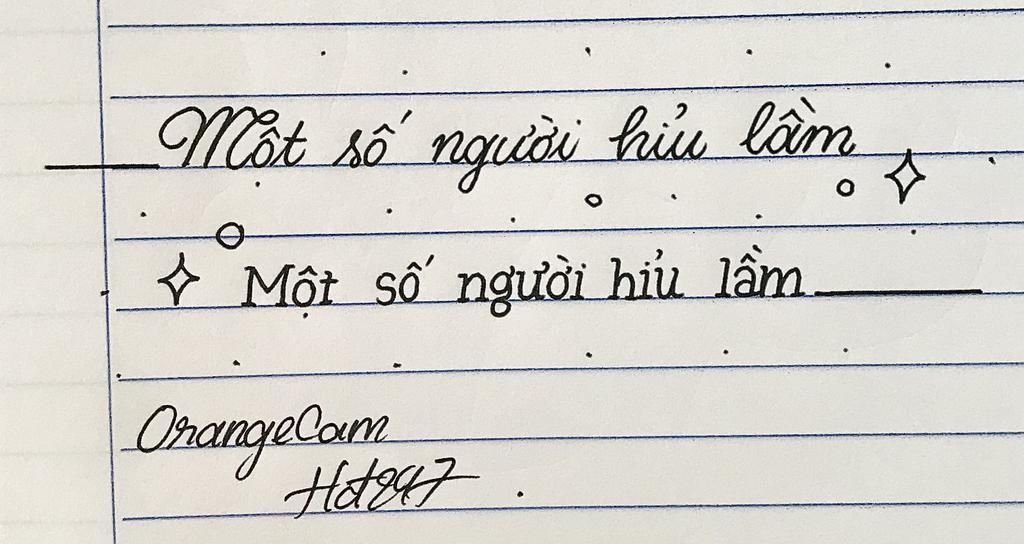 Một số người hỉu lầm
Một số người hỉu lầm
OrangeCam
Hd247